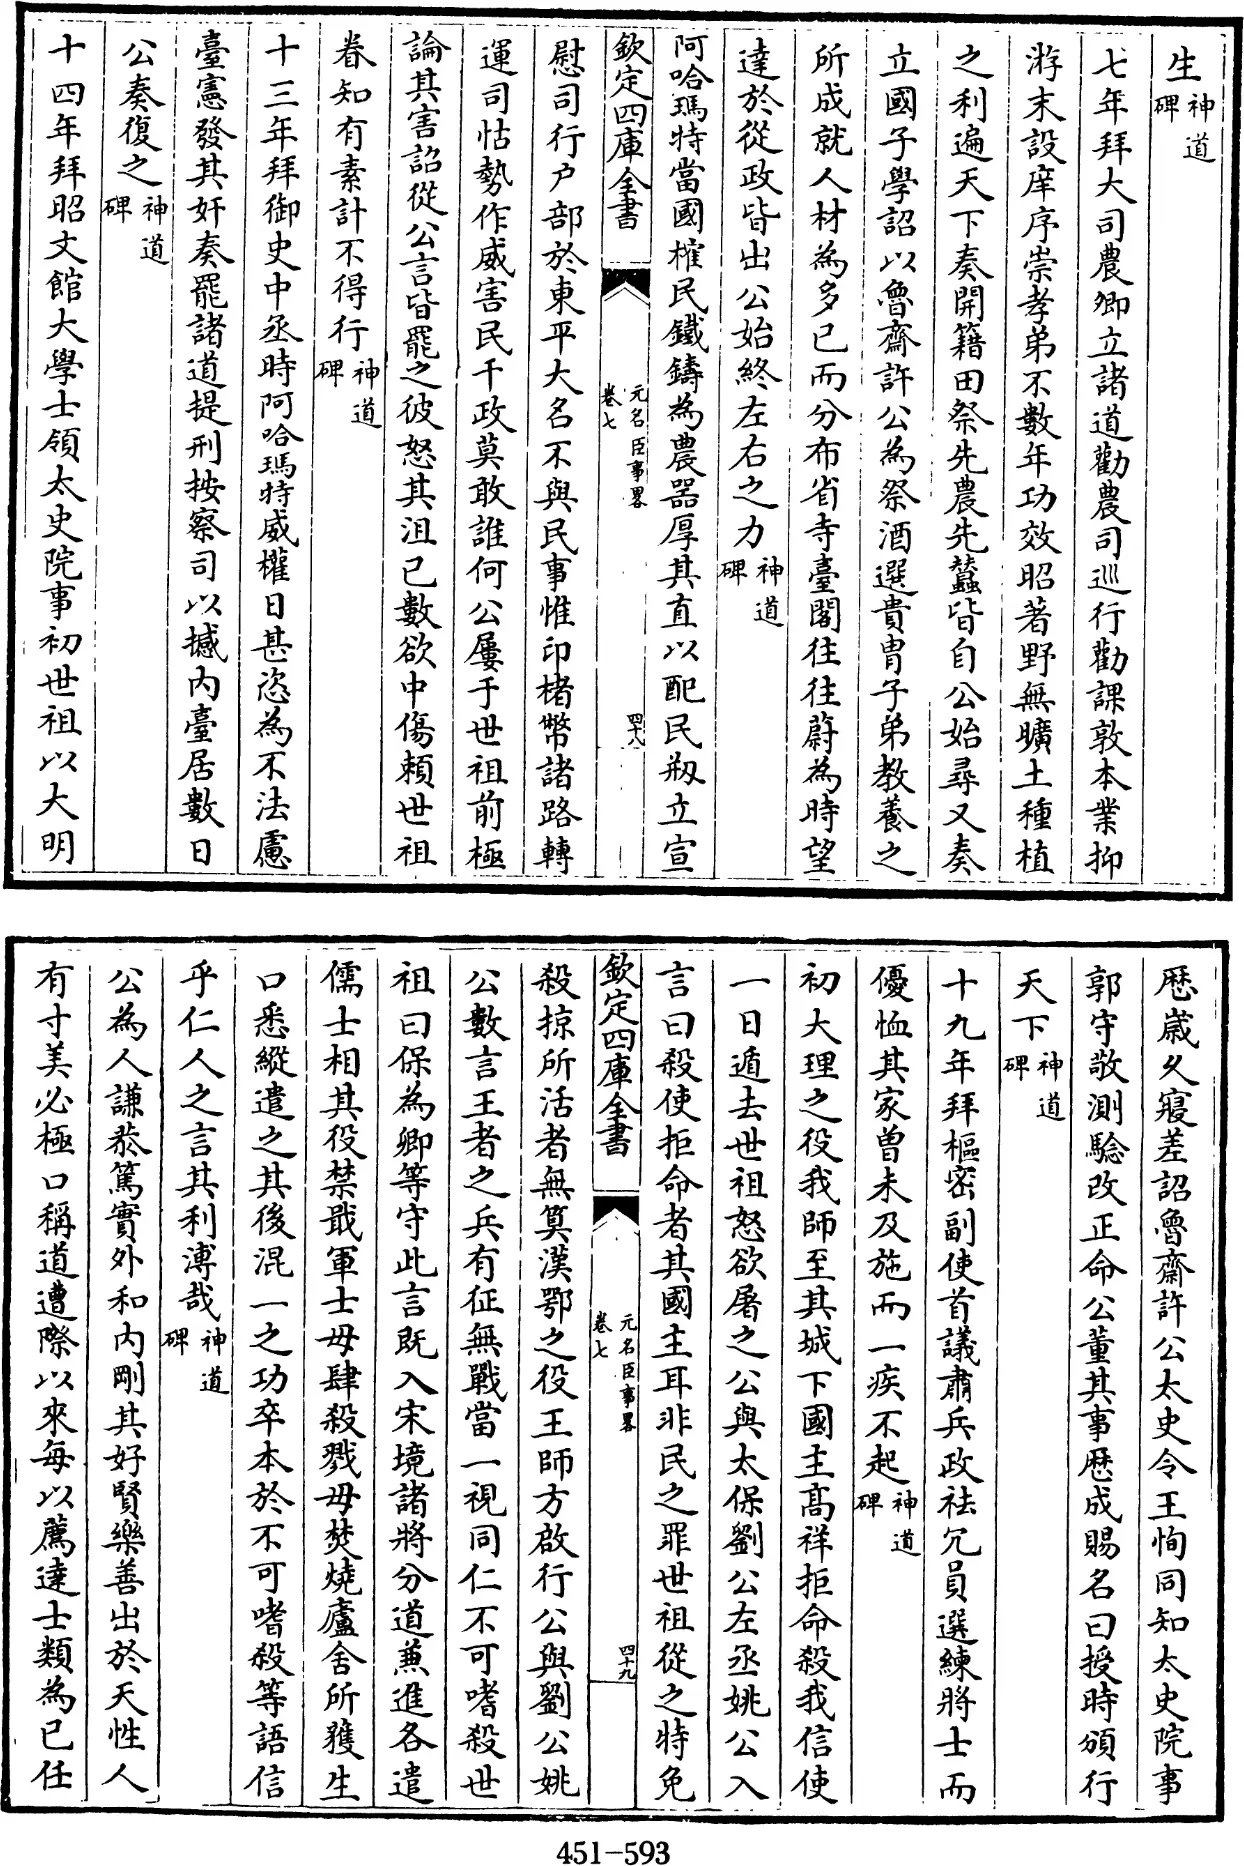 生神道碑
七年拜大司農卿立諸道勸農司巡行勸課敦本業抑
游末設庠序崇孝弟不數年功效昭著野無曠土種植
之利遍天下奏開籍田祭先農先蠶皆自公始尋又奏
立國子學詔以魯齋許公為祭酒選貴胄子弟教養之
所成就人材為多已而分布省寺臺閣往往蔚為時望
達於從政皆出公始終左右之力神道碑
阿哈瑪特當國榷民鐵鑄為農器厚其直以配民剏立宣
欽定四庫全書
元名臣事畧
卷七
四十八
慰司行户部於東平大名不與民事惟印楮幣諸路轉
運司怙勢作威害民干政莫敢誰何公屢于世祖前極
論其害詔從公言皆罷之彼怒其沮已數欲中傷頼世祖
眷知有素計不得行神道碑
十三年拜御史中丞時阿哈瑪特威權日甚恣為不法慮
臺憲發其奸奏罷諸道提刑按察司以撼内臺居數日
公奏復之神道碑
十四年拜昭文館大學士領太史院事初世祖以大明
厯歳久寢差詔魯齋許公太史令王恂同知太史院事
郭守敬測驗改正命公董其事厯成賜名曰授時頒行
天下神道碑
十九年拜樞密副使首議肅兵政袪冗員選練將士而
優恤其家曾未及施而一疾不起神道碑
初大理之役我師至其城下國主髙祥拒命殺我信使
一日遁去世祖怒欲屠之公與太保劉公左丞姚公入
言曰殺使拒命者其國主耳非民之罪世祖從之特免
欽定四庫全書
元名臣事畧
卷七
四十九
殺掠所活者無筭漢鄂之役王師方啟行公與劉公姚
公數言王者之兵有征無戰當一視同仁不可嗜殺世
祖曰保為卿等守此言既入宋境諸將分道兼進各遣
儒士相其役禁戢軍士毋肆殺戮毋焚燒廬舍所獲生
口悉縱遣之其後混一之功卒本於不可嗜殺等語信
乎仁人之言其利溥哉神道碑
公為人謙恭篤實外和内剛其好賢樂善出於天性人
有寸美必極口稱道遭際以來每以薦達士類為已任
451-593